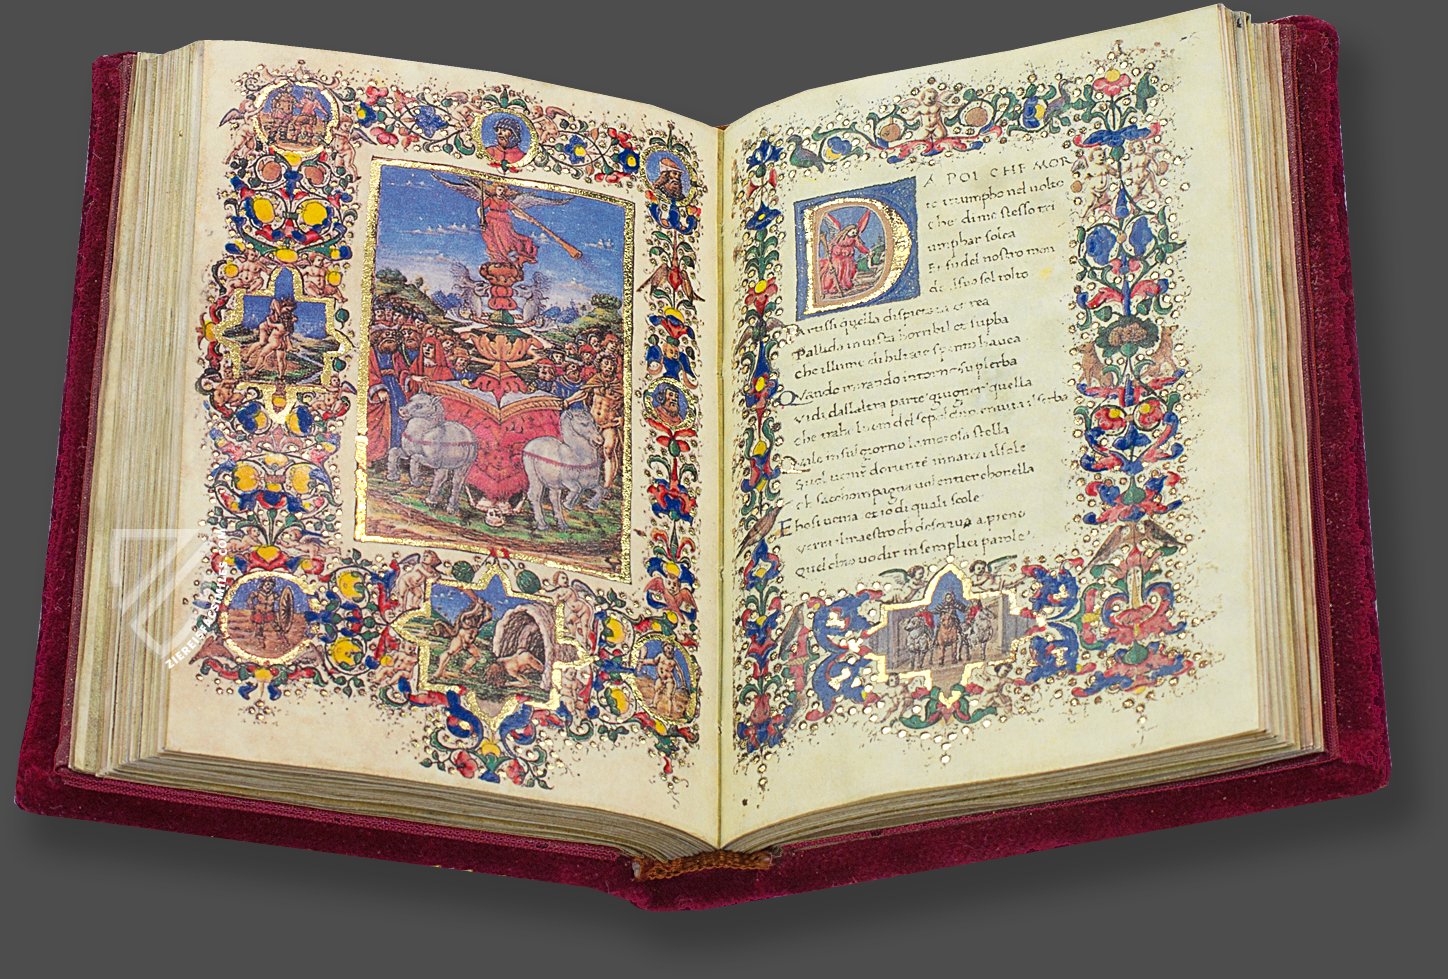 A POI CHE MOR
te triumpho nel uolto
che di me stesso tri
umphar solea
Et fu del nostro mon
do il suo sol tolto
Partissi quella dispietata et rea
Pallida in uista horribil et supba
che il lume di biltate spento hauea
Quando mirando intorno su pierba
vidi dallaltra parte giugner quella
che trahe lhuom del sepulchro en uita il serba
Quale in sul giorno lamorosa stella
suol uenir doriente innanzi il sole
ch saccompagna uolentier chonella
uenia et io di quali scole
verra il maestro ch descriua a pieno
quel chio uo dir in semplici parole
ZIEREIS FACSIMILES.COM